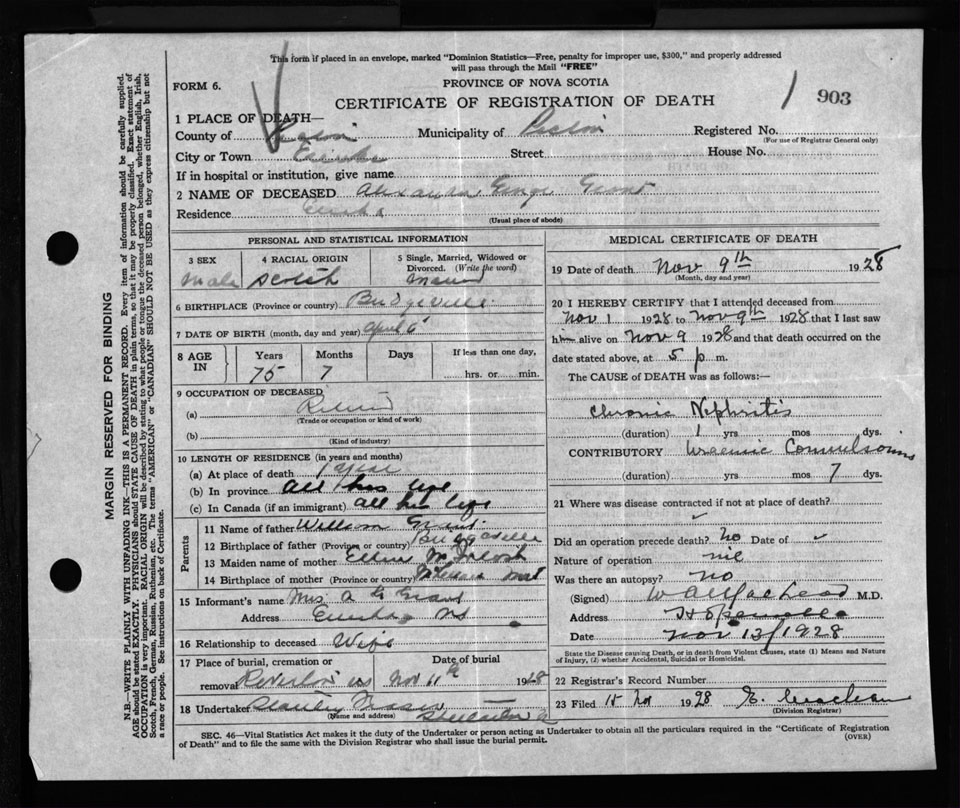 This form if placed in an envelope, marked "Dominion Statistics—Free, penalty for improper use, $300," and properly addressed
will pass through the Mail "FREE"
FORM 6.
PROVINCE OF NOVA SCOTIA
CERTIFICATE OF REGISTRATION OF DEATH
903
1 PLACE OF DEATH—
County of Municipality of Registered No.
(For use of Registrar General only)
City or Town Eureka Street House No.
If in hospital or institution, give name
2 NAME OF DECEASED Alexander George Grant
Residence Eureka
(Usual place of abode)
PERSONAL AND STATISTICAL INFORMATION
3 SEX 4 RACIAL ORIGIN 5 Single, Married, Widowed or Divorced. (Write the word)
Male Scotch
6 BIRTHPLACE (Province or country) Bridgeville
7 DATE OF BIRTH (month, day and year) April 6
8 AGE IN Years Months Days If less than one day,
75 7 hrs. or min.
9 OCCUPATION OF DECEASED
(a) Retired
(Trade or occupation or kind of work)
(b)
(Kind of industry)
10 LENGTH OF RESIDENCE (in years and months)
(a) At place of death 1 year
(b) In province all his life
(c) In Canada (if an immigrant) all his life
Parents
11 Name of father William Grant
12 Birthplace of father (Province or country) Bridgeville
13 Maiden name of mother McIntosh
14 Birthplace of mother (Province or country)
15 Informant's name Mrs A G Grant
Address Eureka NS
16 Relationship to deceased Wife
17 Place of burial, cremation or removal Riverton NS Date of burial Nov 11th 1928
18 Undertaker Stanley Fraser
(Name and address)
MEDICAL CERTIFICATE OF DEATH
19 Date of death Nov 9th 1928
(Month, day and year)
20 I HEREBY CERTIFY that I attended deceased from
Nov 1 1928 to Nov 9th 1928 that I last saw
him alive on Nov 9 1928 and that death occurred on the
date stated above, at 5 p m.
The CAUSE of DEATH was as follows:—
Chronic Nephritis
(duration) 1 yrs mos dys.
CONTRIBUTORY Uraemic Convulsions
(duration) yrs mos 7 dys.
21 Where was disease contracted if not at place of death?
Did an operation precede death? No Date of
Nature of operation nil
Was there an autopsy? no
(Signed) M.D.
Address Hopewell
Date Nov 13/1928
State the Disease causing Death, or in death from Violent Causes, state (1) Means and Nature
of Injury, (2) whether Accidental, Suicidal or Homicidal.
22 Registrar's Record Number
23 Filed 15 Nov 1928
(Division Registrar)
SEC. 46—Vital Statistics Act makes it the duty of the Undertaker or person acting as Undertaker to obtain all the particulars required in the "Certificate of Registration
of Death" and to file the same with the Division Registrar who shall issue the burial permit.
(OVER)
MARGIN RESERVED FOR BINDING
N.B.—WRITE PLAINLY WITH UNFADING INK—THIS IS A PERMANENT RECORD. Every item of information should be carefully supplied.
AGE should be stated EXACTLY. PHYSICIANS should STATE CAUSE OF DEATH in plain terms, so that it may be properly classified. Exact statement of
OCCUPATION is very important. RACIAL ORIGIN will be described by stating to what people or tongue the deceased person belonged, whether English, Irish,
Scotch, French, German, Russian, Ruthenian, etc. The terms "AMERICAN" or "CANADIAN" SHOULD NOT BE USED as they express citizenship but not
a race or people. See instructions on back of Certificate.